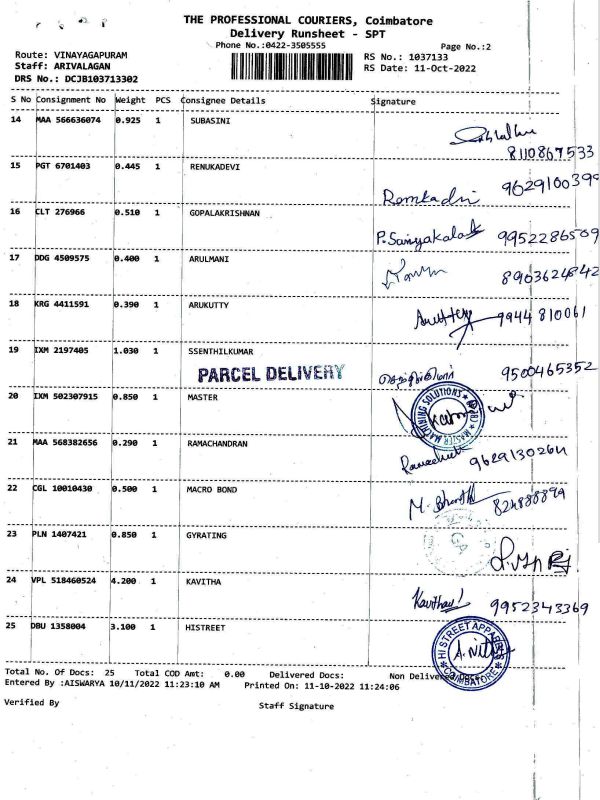 THE PROFESSIONAL COURIERS, Coimbatore
Delivery Runsheet - SPT
Phone No.:0422-3505555
Page No.:2
Route: VINAYAGAPURAM
RS No.: 1037133
Staff: ARIVALAGAN
RS Date: 11-Oct-2022
DRS No.: DCJB103713302
S No Consignment No Weight PCS Consignee Details Signature
14 MAA 566636074 0.925 1 SUBASINI
8110867533
15 PGT 6701403 0.445 1 RENUKADEVI
9629100399
16 CLT 276966 0.510 1 GOPALAKRISHNAN
9952286509
17 DDG 4509575 0.400 1 ARULMANI
8903624842
18 KRG 4411591 0.390 1 ARUKUTTY
9944 810061
19 IXM 2197405 1.030 1 SSENTHILKUMAR
PARCEL DELIVERY
9500465352
20 IXM 502307915 0.850 1 MASTER
MASTER MACHINING SOLUTIONS
21 MAA 568382656 0.290 1 RAMACHANDRAN
9629130264
22 CGL 10010430 0.500 1 MACRO BOND
M. Bharathi
23 PLN 1407421 0.850 1 GYRATING
24 VPL 518460524 4.200 1 KAVITHA
Kavitha 9952343369
25 DBU 1358004 3.100 1 HISTREET
HI STREET APPARELS COIMBATORE
Total No. Of Docs: 25 Total COD Amt: 0.00 Delivered Docs: Non Delivered Docs:
Entered By :AISWARYA 10/11/2022 11:23:10 AM Printed On: 11-10-2022 11:24:06
Verified By Staff Signature